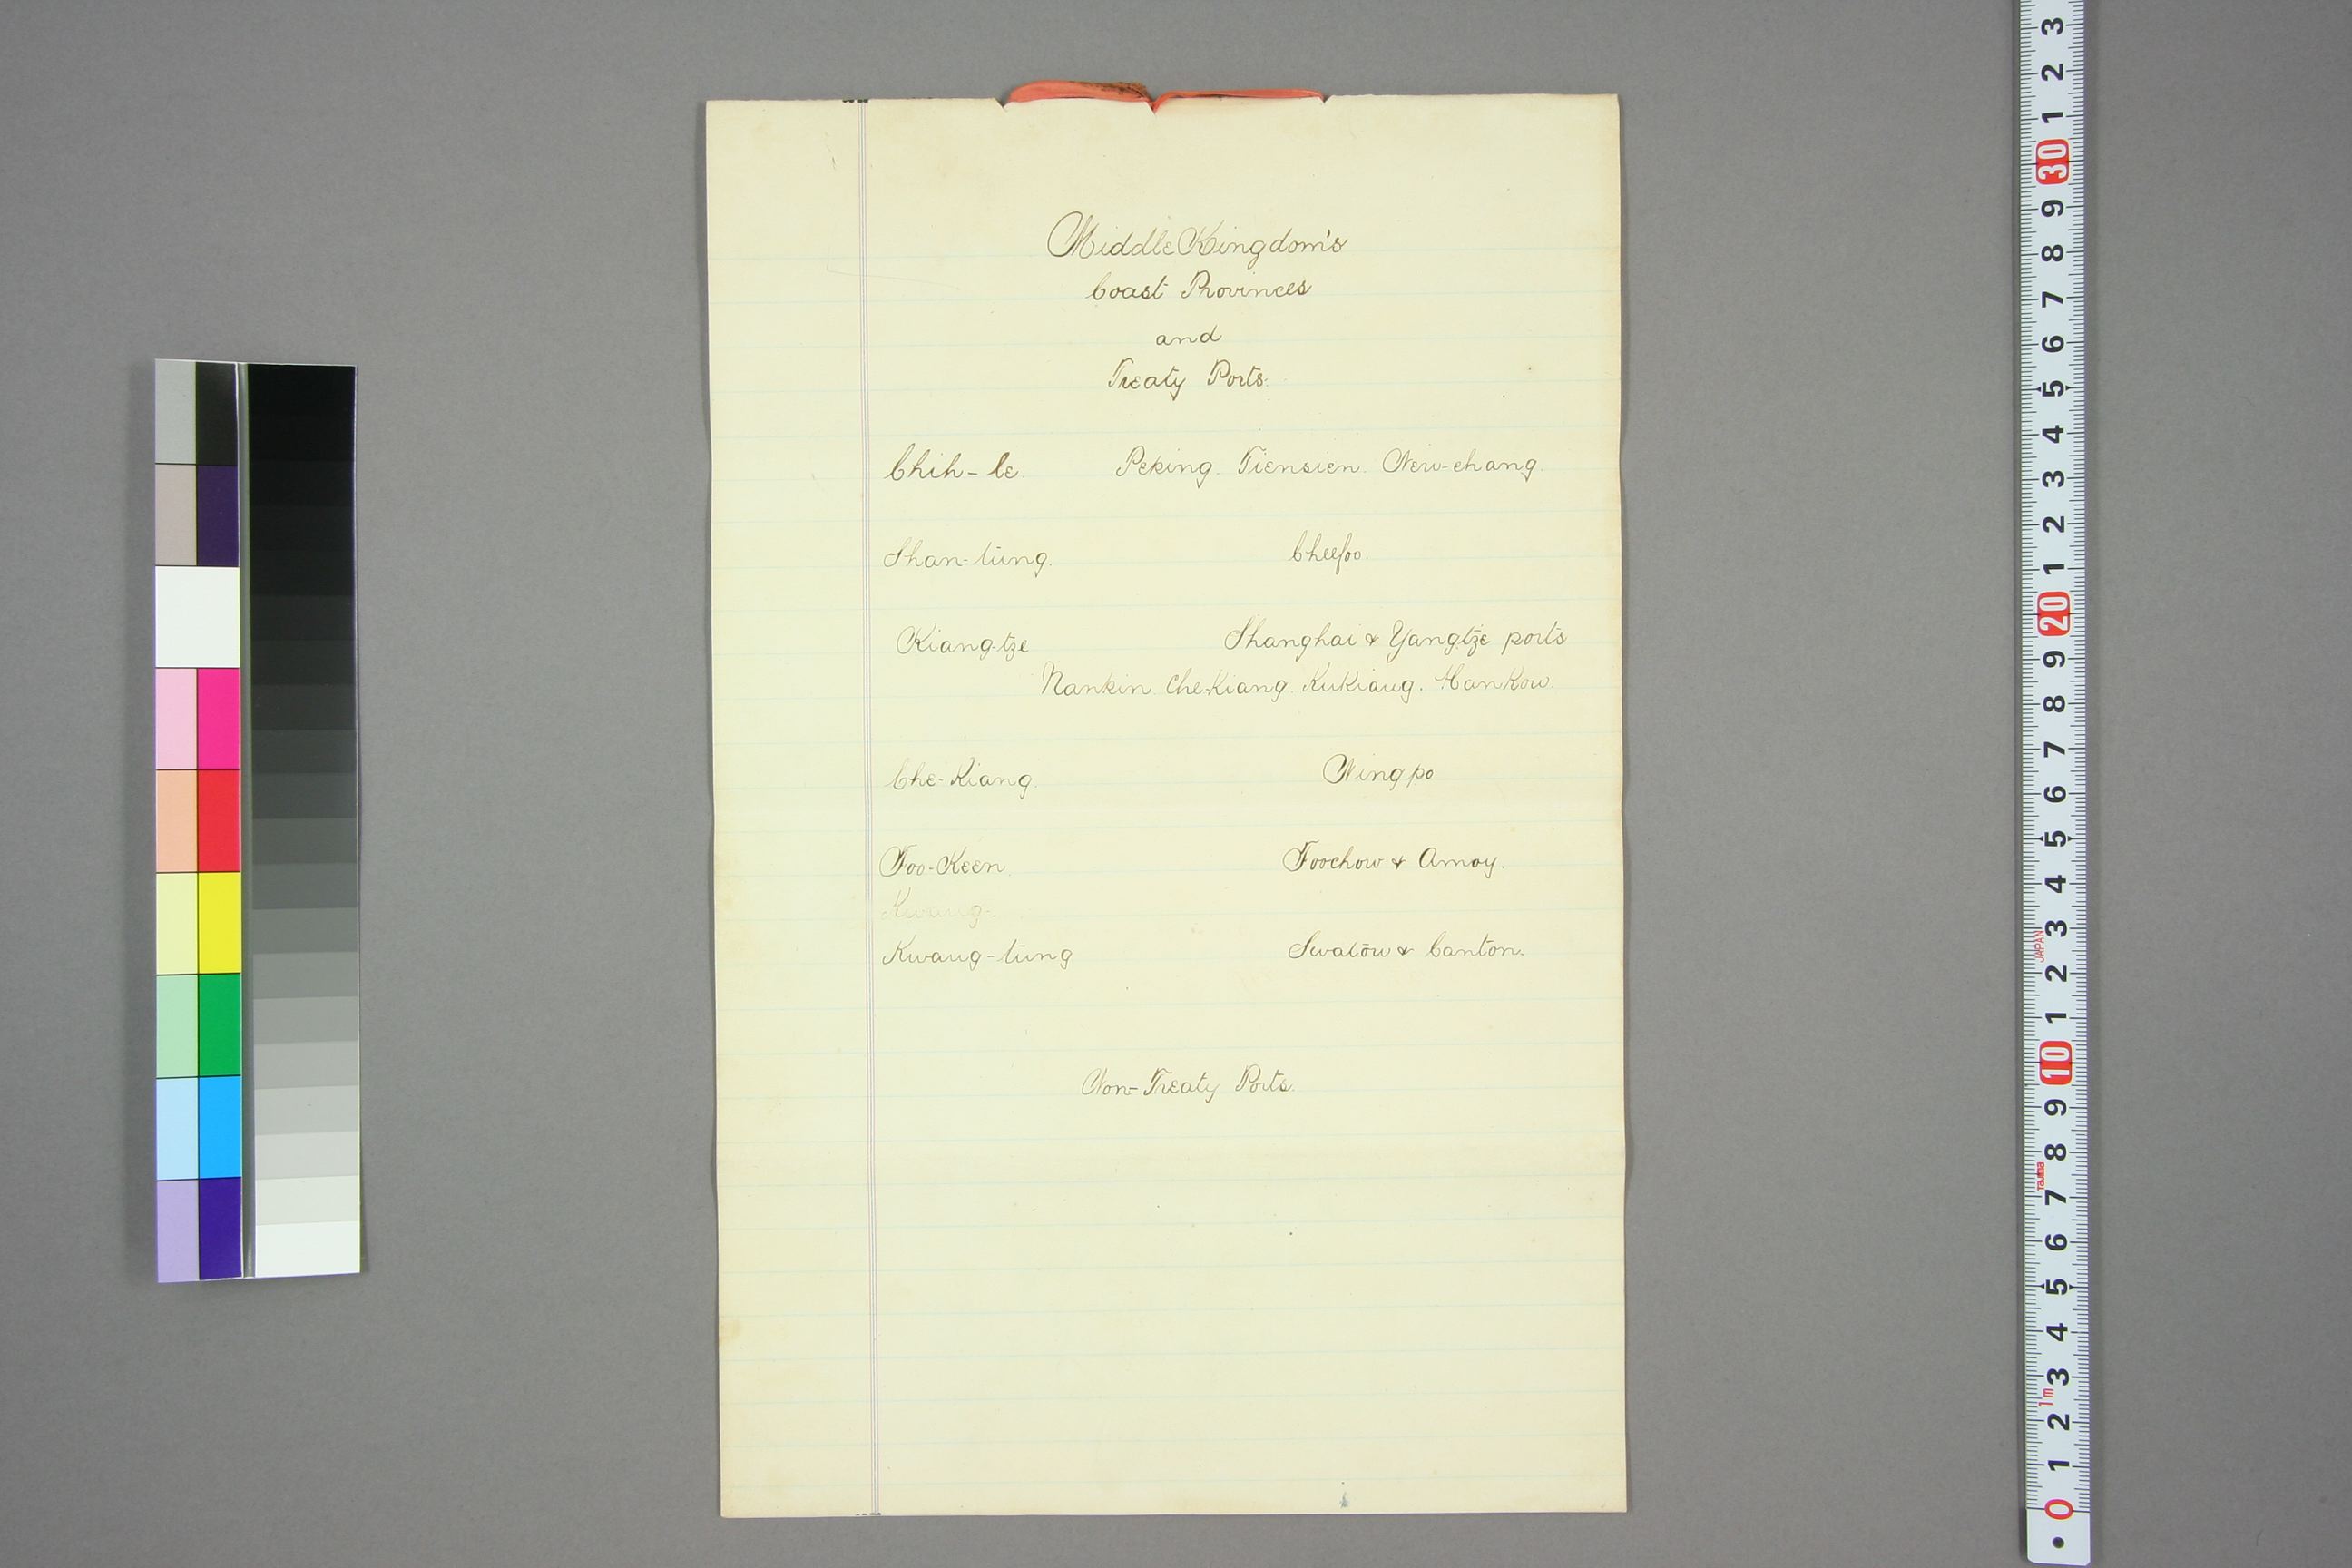 Middle Kingdom's
Coast Provinces
and
Treaty Ports.
Chih-le. Peking. Tiensien. New-chang.
Shan-tung. Cheefoo.
Kiang-tze Shanghai & Yangtze ports
Nankin. Che-Kiang. KuKiang. HanKow.
Che-Kiang. Ningpo
Foo-Keen. Foochow & Amoy.
Kwang-
Kwang-tung Swatow & Canton.
Non-Treaty Ports.
3
2
1
30
9
8
7
6
5
4
3
2
1
20
9
8
7
6
5
4
3
JAPAN
2
1
10
9
8
Tajima
7
6
5
4
3
1m
2
1
0